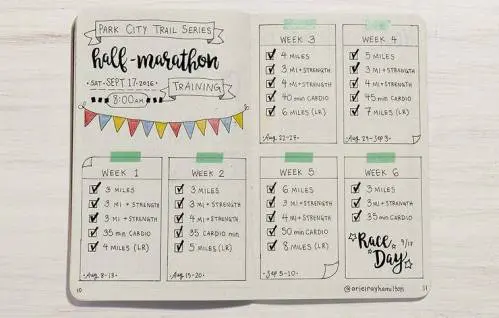 PARK CITY TRAIL SERIES
half-marathon
•SAT•SEPT 17•2016•
TRAINING
8:00AM
WEEK 1
3 MILES
3 MI + STRENGTH
3 MI + STRENGTH
35 min CARDIO
4 MILES (LR)
Aug. 8-13
WEEK 2
3 MILES
3 MI + STRENGTH
4 MI + STRENGTH
35 CARDIO min
5 MILES (LR)
Aug. 15-20
10
WEEK 3
4 MILES
3 MI + STRENGTH
4 MI + STRENGTH
40 min CARDIO
6 MILES (LR)
Aug. 22-27
WEEK 4
5 MILES
3 MI + STRENGTH
4 MI + STRENGTH
45 min CARDIO
7 MILES (LR)
Aug. 29-Sep 3
WEEK 5
6 MILES
3 MI + STRENGTH
4 MI + STRENGTH
50 min CARDIO
8 MILES (LR)
Sep 5-10
WEEK 6
3 MILES
3 MI + STRENGTH
35 min CARDIO
Race
9/17
Day
@arielrayhamilton
11